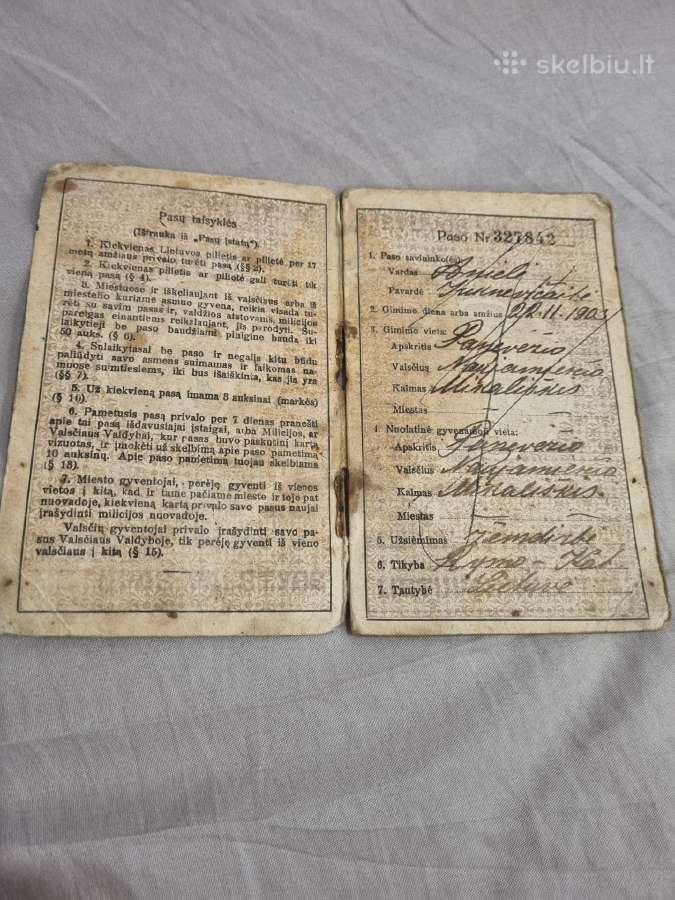 skelbiu.lt
Pasų taisyklės
(Ištrauka iš „Pasų įstatų“).
1. Kiekvienas Lietuvos pilietis ar pilietė per 17
metų amžiaus privalo turėti pasą (§§ 2).
2. Kiekvienas pilietis ar pilietė gali turėti tik
vieną pasą (§ 4).
3. Miestuose ir iškeliaujant iš valsčiaus arba iš
miestelio kuriame asmuo gyvena, reikia visada tu-
rėti su savim pasas ir, valdžios atstovams, milicijos
pareigas einantiems reikalaujant, jis parodyti. Su-
laikytieji be paso baudžiami pinigine bauda iki
50 auks. (§ 6).
4. Sulaikytasai be paso ir negalįs kitu būdu
paliudyti savo asmens suimamas ir laikomas na-
muose suimtiesiems, iki bus išaiškinta, kas jis yra
(§§ 7).
5. Už kiekvieną pasą imama 8 auksinai (markės)
(§ 10).
6. Pametusis pasą privalo per 7 dienas pranešti
apie tai pasą išdavusiajai įstaigai, arba Milicijos, ar
Valsčiaus Valdybai, kur pasas buvo paskutinį kartą
vizuotas, ir įmokėti už skelbimą apie paso pametimą
10 auksinų. Apie paso pametimą tuojau skelbiama
(§ 18).
7. Miesto gyventojai, perėję gyventi iš vienos
vietos į kitą, kad ir tame pačiame mieste ir toje pat
nuovadoje, kiekvieną kartą privalo savo pasus naujai
įrašydinti milicijos nuovadoje.
Valsčių gyventojai privalo įrašydinti savo pa-
sus Valsčiaus Valdyboje, tik perėję gyventi iš vieno
valsčiaus į kitą (§ 15).
Paso Nr 327842
1. Paso savininko(ės):
Vardas Anielė
Pavardė
2. Gimimo diena arba amžius 2/2-II-1903
3. Gimimo vieta:
Apskritis Panevėžio
Valsčius Naujamiesčio
Kaimas Mihališkis
Miestas
4. Nuolatinė gyvenamoji vieta:
Apskritis Panevėžio
Valsčius Naujamiesčio
Kaimas Mihališkis
Miestas
5. Užsiėmimas žemdirbė
6. Tikyba Rymo-Kat.
7. Tautybė Lietuvė